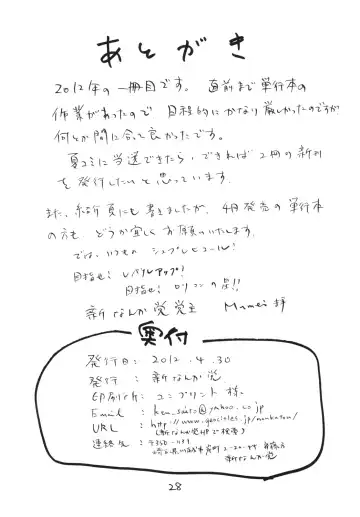 あとがき
2012年の一冊目です。直前まで単行本の
作業があったので、日程的にかなり厳しかったのですが
何とか間に合って良かったです。
夏コミに当選できたら、できれば2冊の新刊
を発行したいと思っています。
また、本編裏にも書きましたが、4月発売の単行本
の方も、どうか宜しくお願いいたします。
では、いつもの シュプレヒコール!
目指せ! レベルアップ!
目指せ! ロリコンの星!!
新なんか党 党主 Mumei 拝
奥付
発行日: 2012.4.30
発行 : 新なんか党
印刷所: ユニプリント 様
Email :
URL :
(新なんか党HPで検索)
連絡先 : 〒350-1131
新なんか党
28